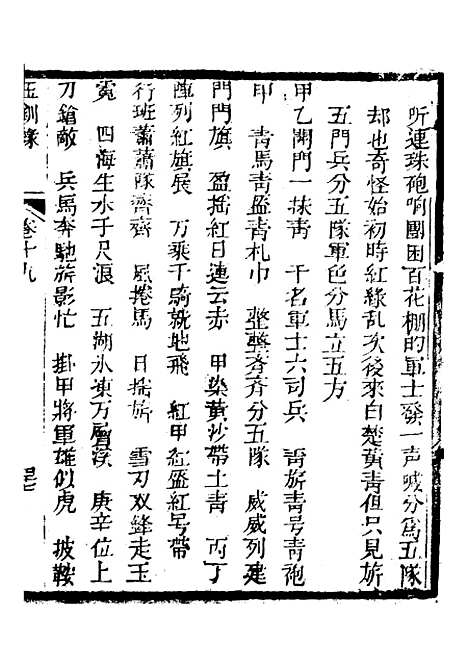 听連珠砲响團困百花棚的軍士發一声喊分爲五隊
却也奇怪始初時紅緑乱次後來白楚黄青但只見旂
五門兵分五隊軍色分馬立五方
甲乙開門一抹青 千名軍士六司兵 青旂青号青袍
甲 青馬青盔青札巾 整整斉斉分五隊 威威列建
門門旗 盈搖紅日連云赤 甲染黄沙帶土青 丙丁
陣列紅旗展 万乘千騎就地飛 紅甲紅盔紅号帶
行班蕭蕭隊濟齊 風捲馬 日搖旂 雪刃双鋒走玉
兎 四海生水子尺浪 五湖氷凍万層 庚辛位上
刀鎗敵 兵馬奔馳旂影忙 掛甲將軍雄似虎 披鞍
玉釧縁
卷十九